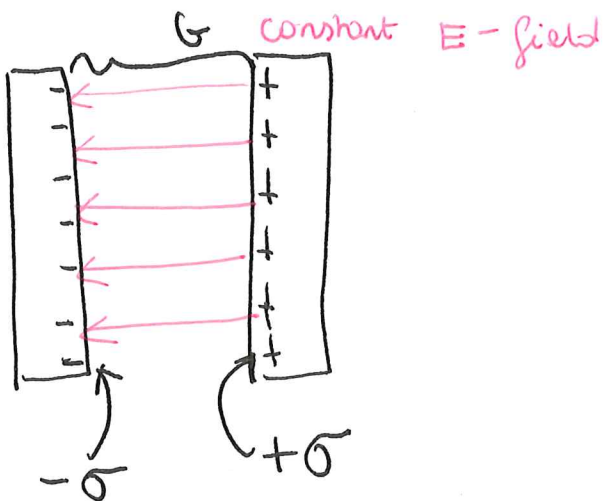 G constant E-field
- +
- +
- +
- +
- +
- +
-σ +σ